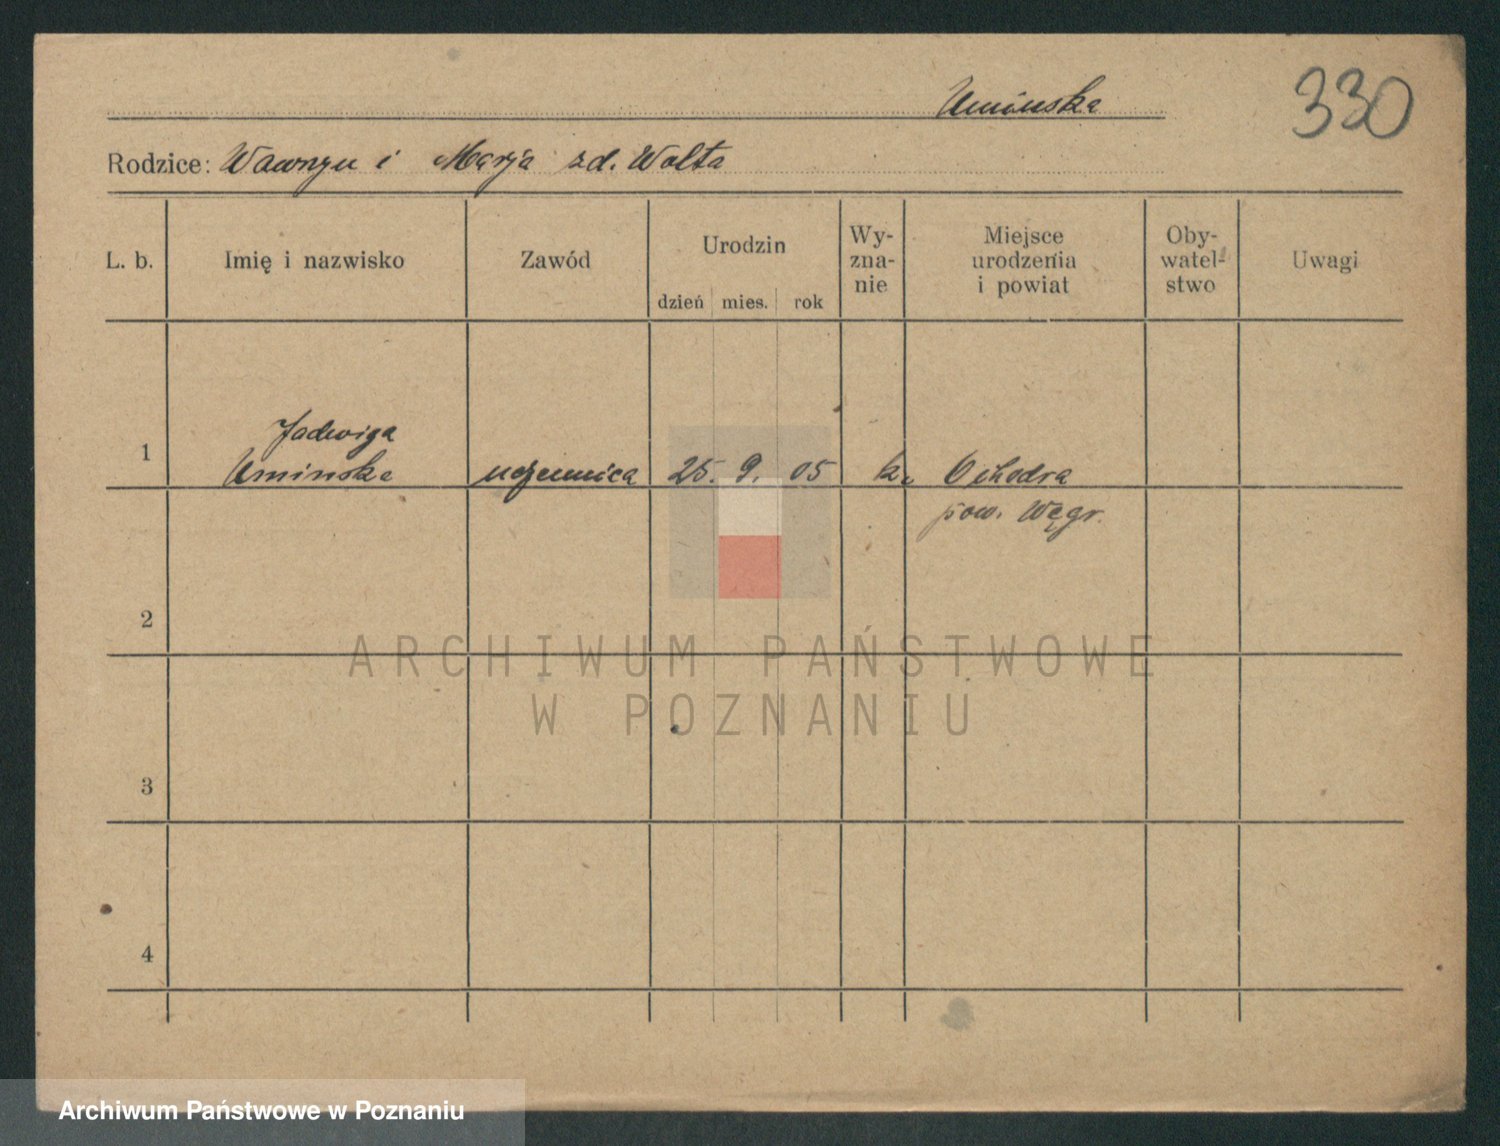 Uminska
330
Rodzice: Wawrzyn i Marja zd. Wolta
L. b.
Imię i nazwisko
Zawód
Urodzin
dzień mies. rok
Wy-
zna-
nie
Miejsce
urodzenia
i powiat
Oby-
watel-
stwo
Uwagi
Jadwiga
1 Uminska uczennica 25. 9. 05 k.
pow. Węgr.
2
3
4
ARCHIWUM PAŃSTWOWE
W POZNANIU
Archiwum Państwowe w Poznaniu